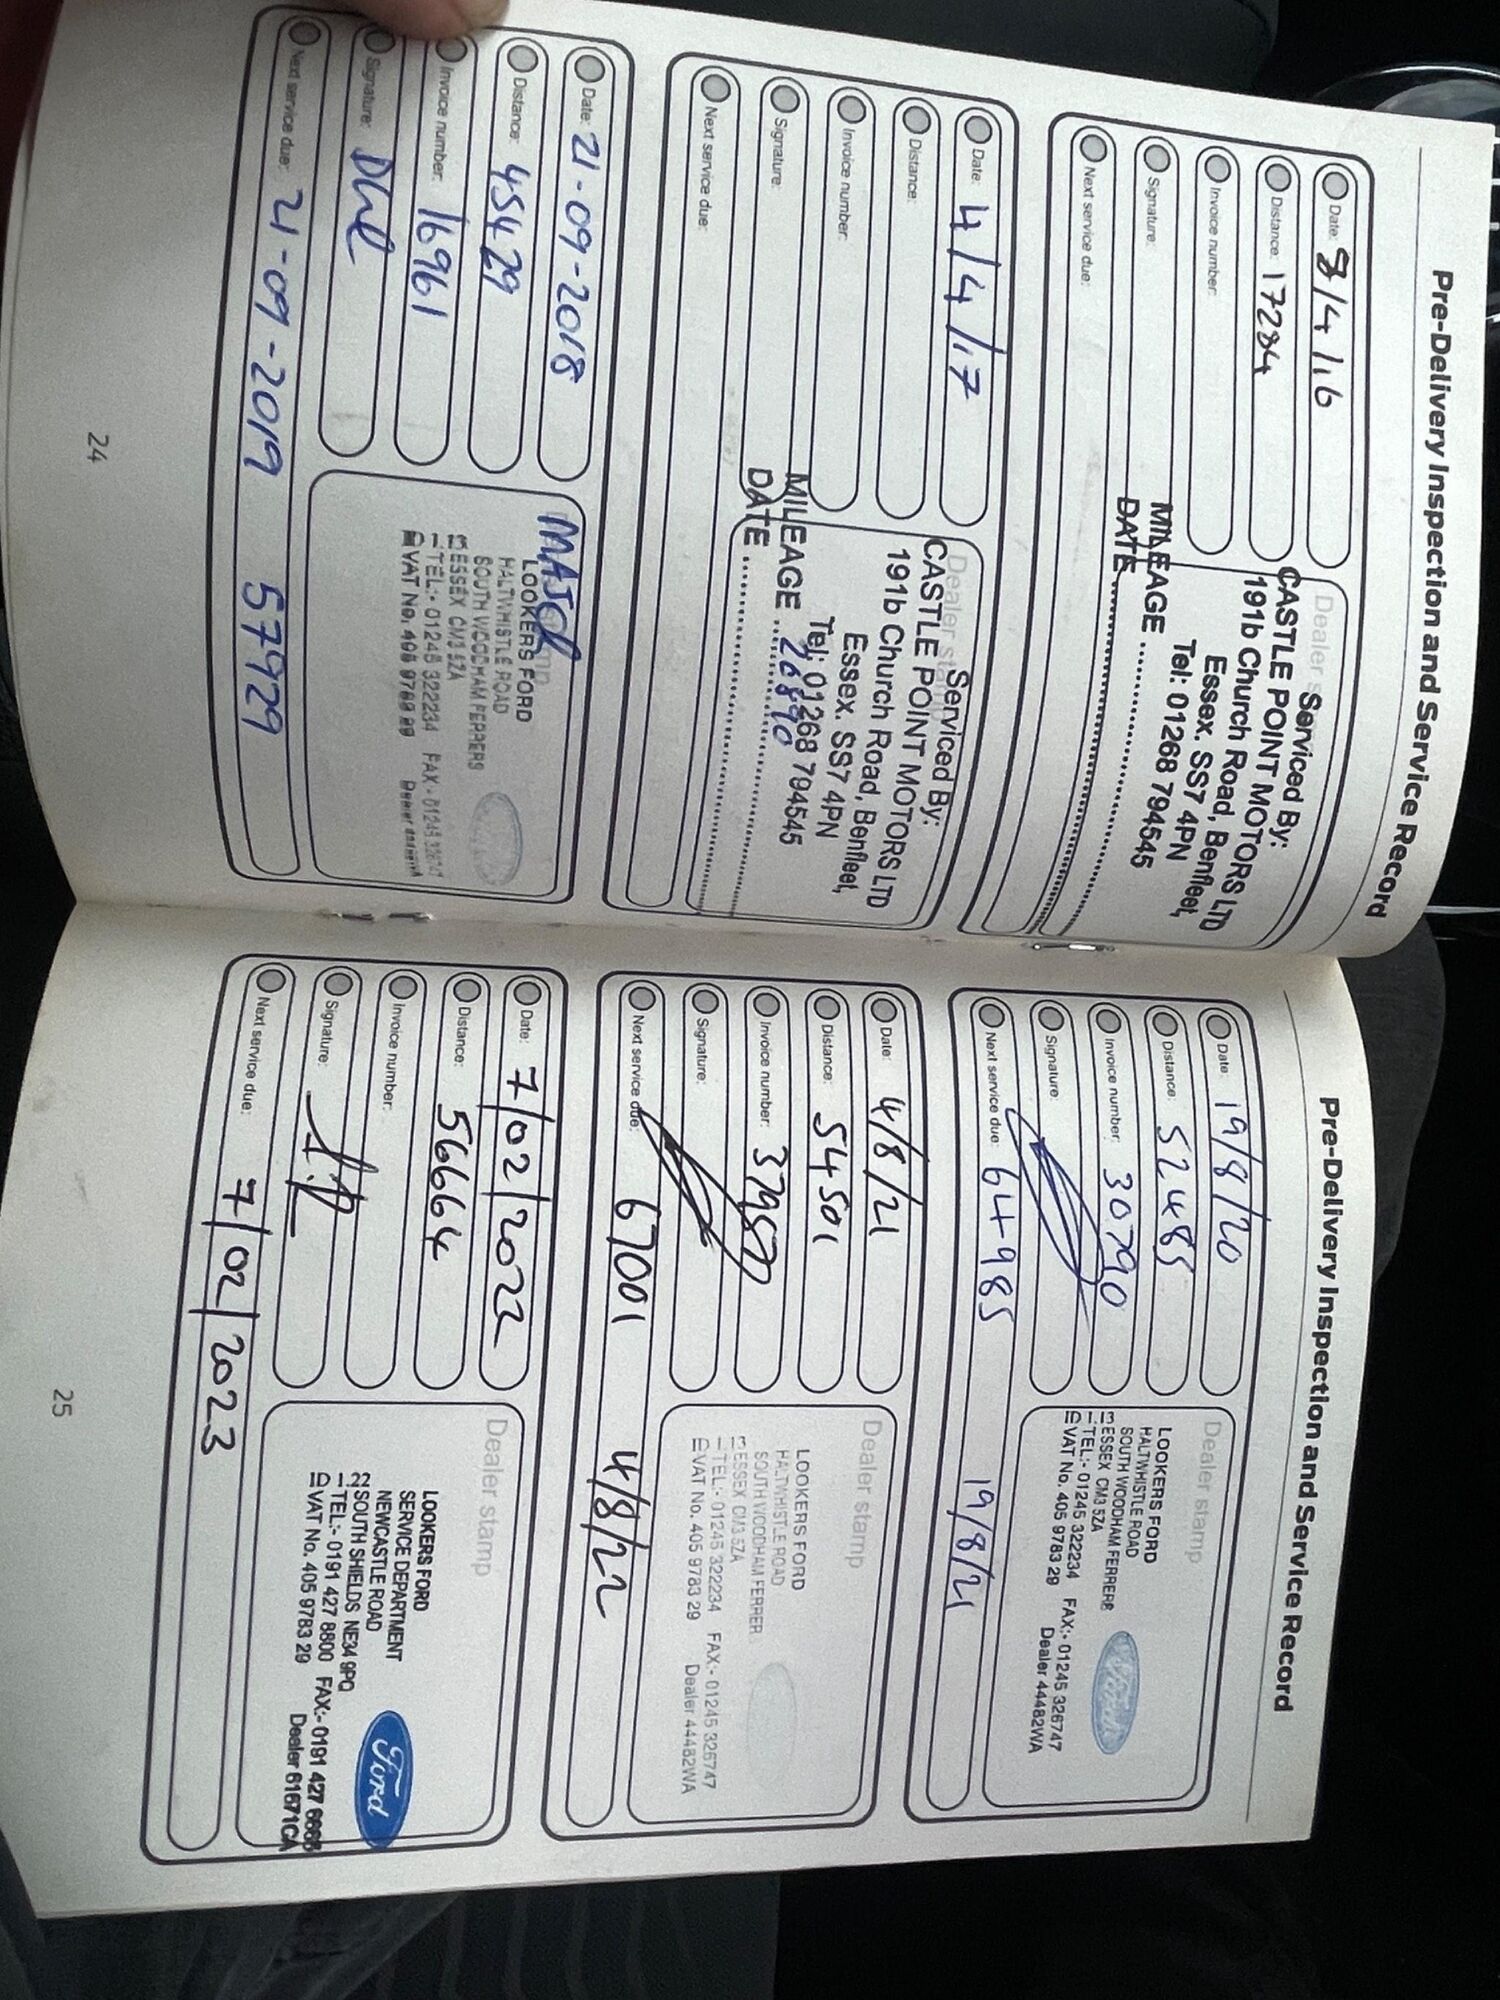 Pre-Delivery Inspection and Service Record
Date: 8/4/16
Distance: 17284
Invoice number:
Signature:
Next service due:
Dealer
Serviced By:
CASTLE POINT MOTORS LTD
191b Church Road, Benfleet,
Essex. SS7 4PN
Tel: 01268 794545
MILEAGE
DATE
Date: 4/4/17
Distance:
Invoice number:
Signature:
Next service due:
Dealer
Serviced By:
CASTLE POINT MOTORS LTD
191b Church Road, Benfleet,
Essex. SS7 4PN
Tel: 01268 794545
MILEAGE 26890
DATE
Date: 21-09-2018
Distance: 45429
Invoice number: 16961
Signature:
Next service due: 21-09-2019 57929
LOOKERS FORD
HALTWHISTLE ROAD
SOUTH WOODHAM FERRERS
ESSEX CM3 5ZA
TEL:- 01245 322234 FAX:- 01245 326747
VAT No. 405 9783 29 Dealer
24
Pre-Delivery Inspection and Service Record
Date: 19/8/20
Distance: 52485
Invoice number: 30790
Signature:
Next service due: 64985 19/8/21
Dealer stamp
LOOKERS FORD
HALTWHISTLE ROAD
SOUTH WOODHAM FERRERS
ESSEX CM3 5ZA
TEL:- 01245 322234 FAX:- 01245 326747
VAT No. 405 9783 29 Dealer 44482WA
Date: 4/8/21
Distance: 54501
Invoice number:
Signature:
Next service due: 67001 4/8/22
Dealer stamp
LOOKERS FORD
HALTWHISTLE ROAD
SOUTH WOODHAM FERRER
ESSEX CM3 5ZA
TEL:- 01245 322234 FAX:- 01245 326747
VAT No. 405 9783 29 Dealer 44482WA
Date: 7/02/2022
Distance: 56664
Invoice number:
Signature:
Next service due: 7/02/2023
Dealer stamp
LOOKERS FORD
SERVICE DEPARTMENT
NEWCASTLE ROAD
SOUTH SHIELDS NE34 9PQ
TEL:- 0191 427 8800 FAX:- 0191 427 6668
VAT No. 405 9783 29 Dealer 61671CA
Ford
25